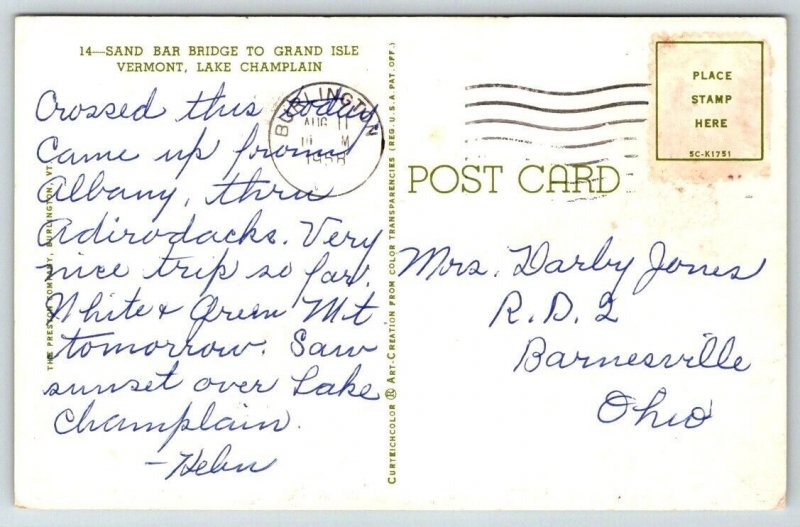 14—SAND BAR BRIDGE TO GRAND ISLE
VERMONT, LAKE CHAMPLAIN
Crossed this today
Came up from
Albany, thru
Adirodacks. Very
nice trip so far.
White & Green Mt
tomorrow. Saw
sunset over Lake
Champlain.
—Helen
THE PRESTON COMPANY, BURLINGTON, VT.
CURTEICHCOLOR ® ART-CREATION FROM COLOR TRANSPARENCIES (REG. U.S.A. PAT. OFF.)
BURLINGTON
AUG 11
M
1958
PLACE
STAMP
HERE
5C-K1751
POST CARD
Mrs. Darby Jones
R.D. 2
Barnesville
Ohio